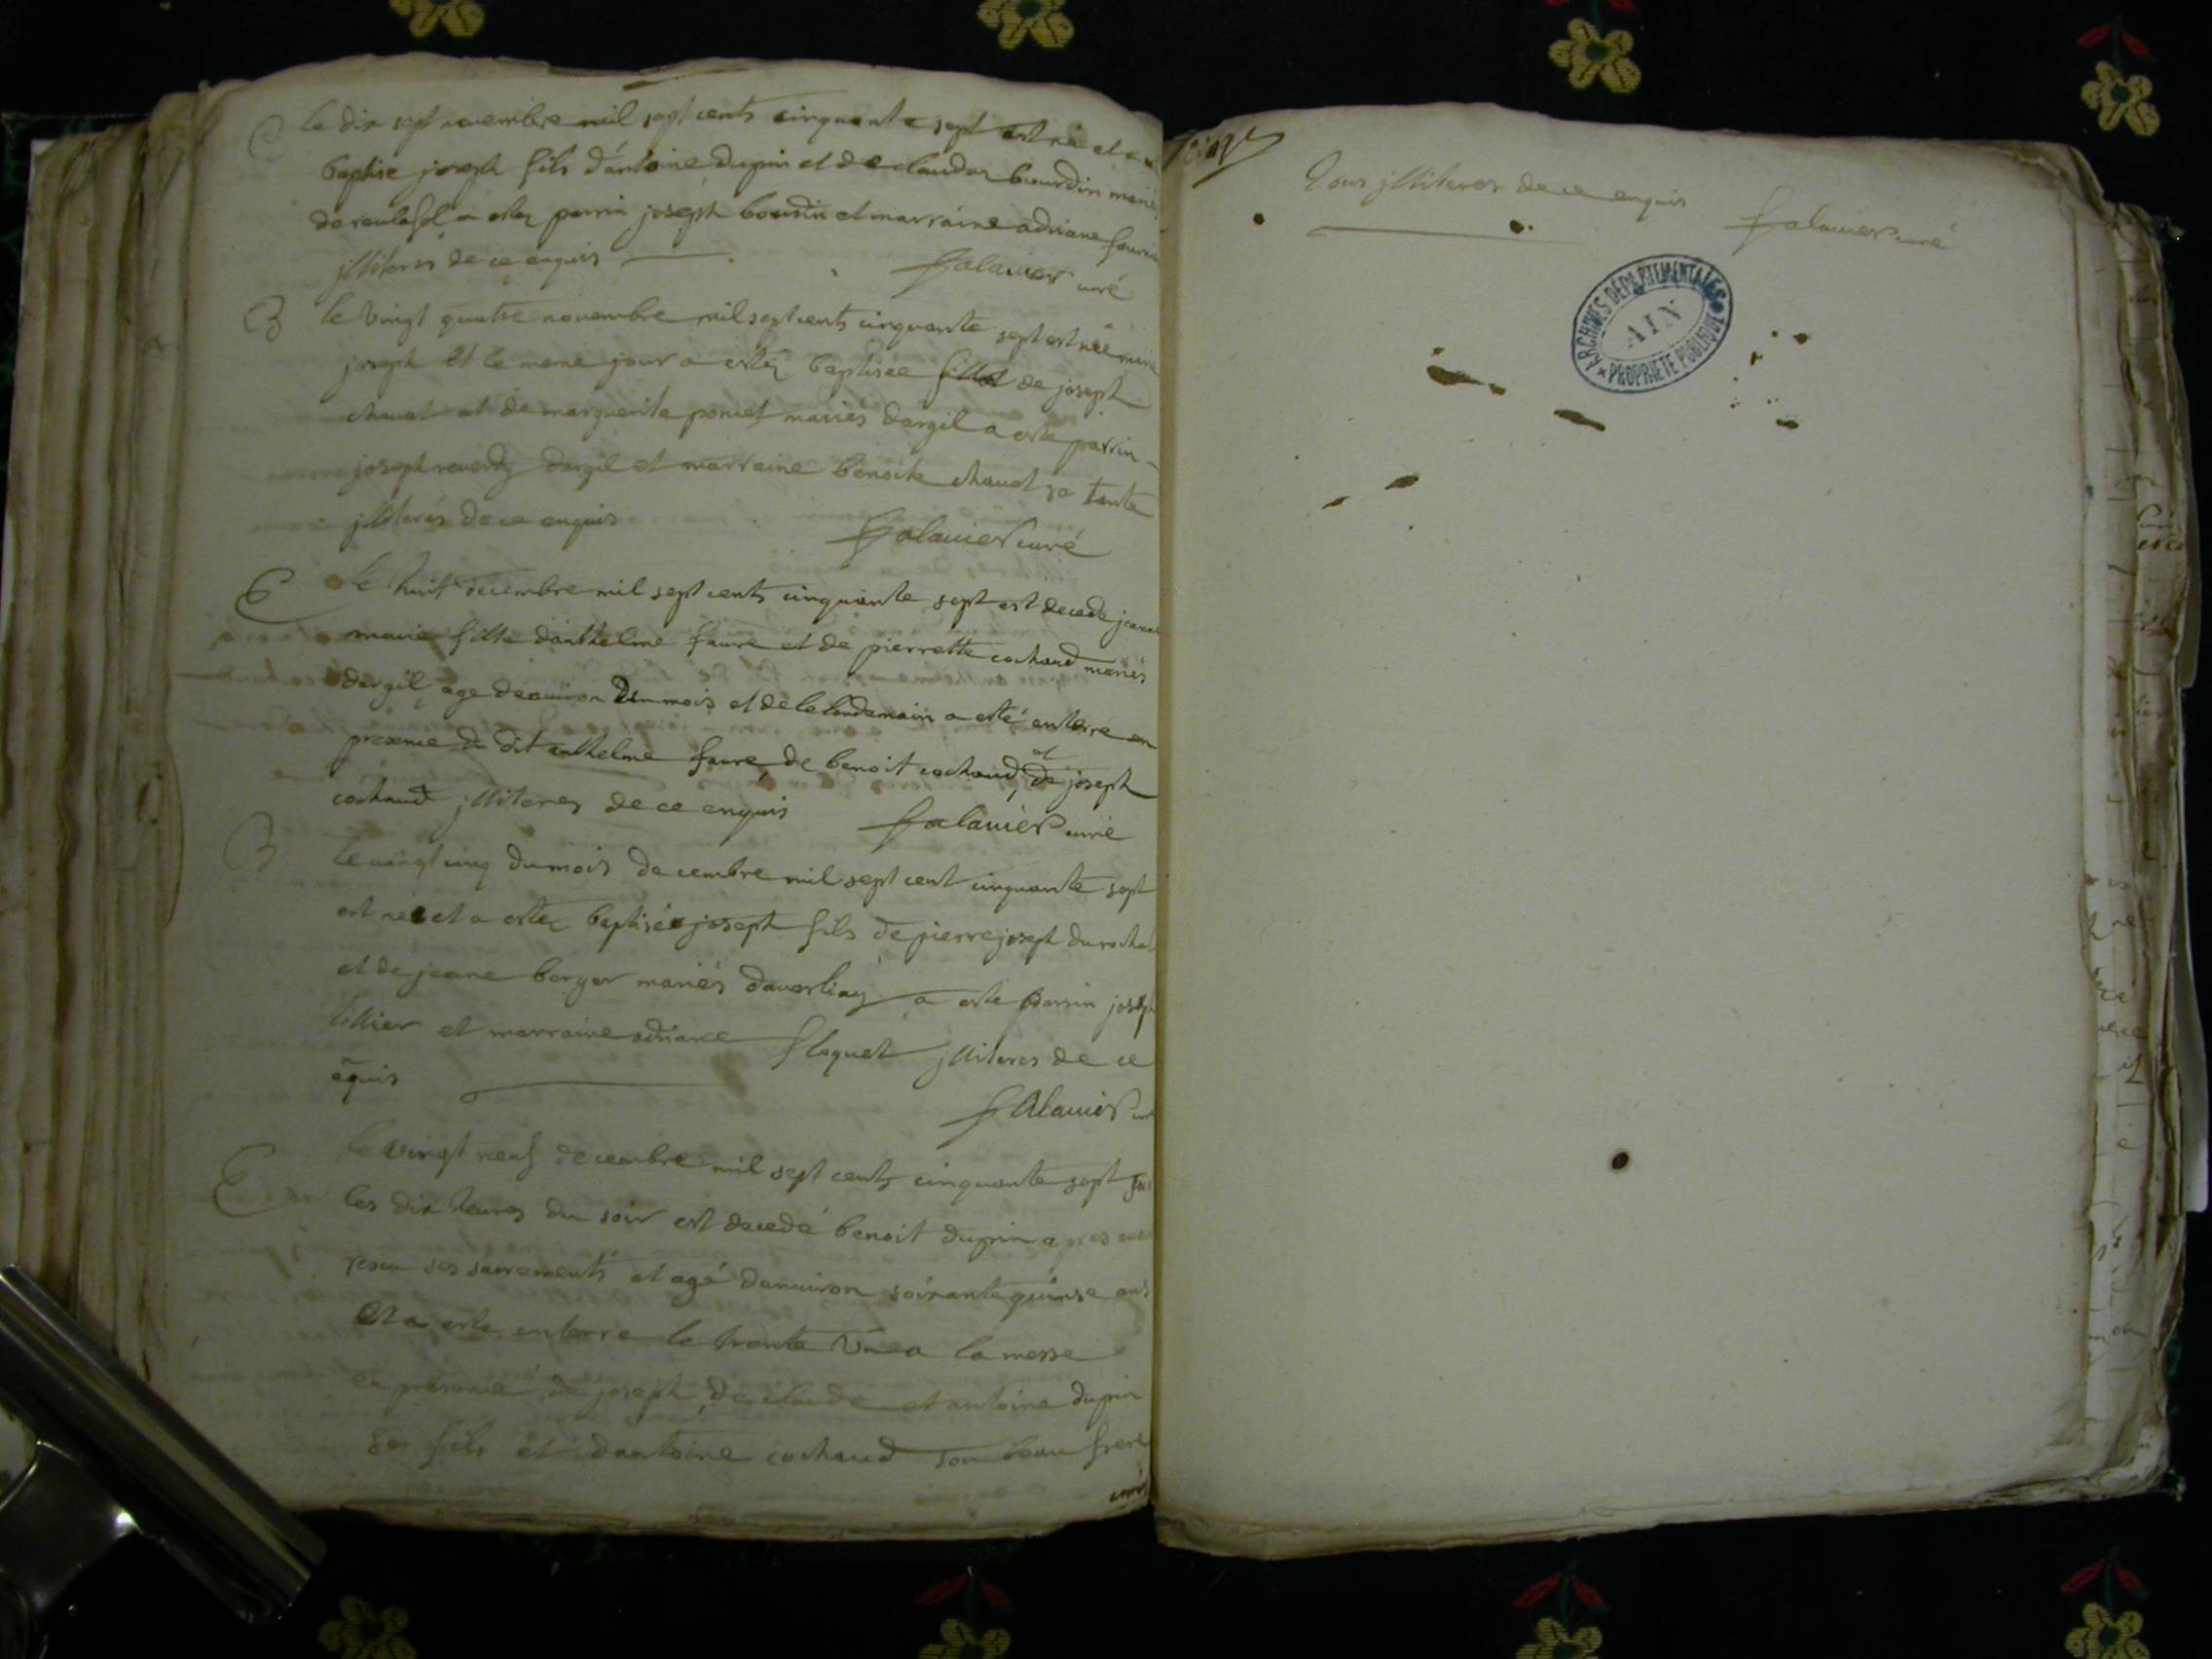 B
le dix sept novembre mil sept cents cinquante sept est né et a
baptise joseph fils d'antoine dupin et de claudaz bourdin mariés
a estez parrin joseph bourdin et marraine adriane
jlliteres de ce enquis
falavier curé
B
le vingt quatre novembre mil sept cents cinquante sept est née marie
joseph et le meme jour a estéz baptisée fille de joseph
chavat et de marguerite poncet mariés dargil a este parrin
joseph reverdy dargil et marraine benoite chavat sa tante
jlliterés de ce enquis
falavier curé
E
le huit decembre mil sept cents cinquante sept est decede jeanne
marie fille danthelme favre et de pierrette cochaud mariés
dargil age denviron un mois et de le lendemain a esté enterré en
presence du dit anthelme favre, de benoit cochaud, et de joseph
cochaud jlliteres de ce enquis
falavier curé
B
le vingt cinq du mois decembre mil sept cent cinquante sept
est né et a estez baptisée joseph fils de pierre joseph durochat
et de jeane berger mariés a este parrin joseph
tillier et marraine adriane floquet jlliteres de ce
eñquis
falavier curé
E
le vingt neuf decembre mil sept cents cinquante sept sur
les dix heures du soir est decedé benoit dupin apres avoir
reseu ses sacrements et agé denviron soixante quinse ans
et a este enterre le trante un a la messe
en presence de joseph, de claude et antoine dupin
ses fils et dantoine cochaud son beau frere
tous jlliteres de ce enquis
falavier curé
ARCHIVES DEPARTEMENTALES
AIN
PROPRIETE PUBLIQUE